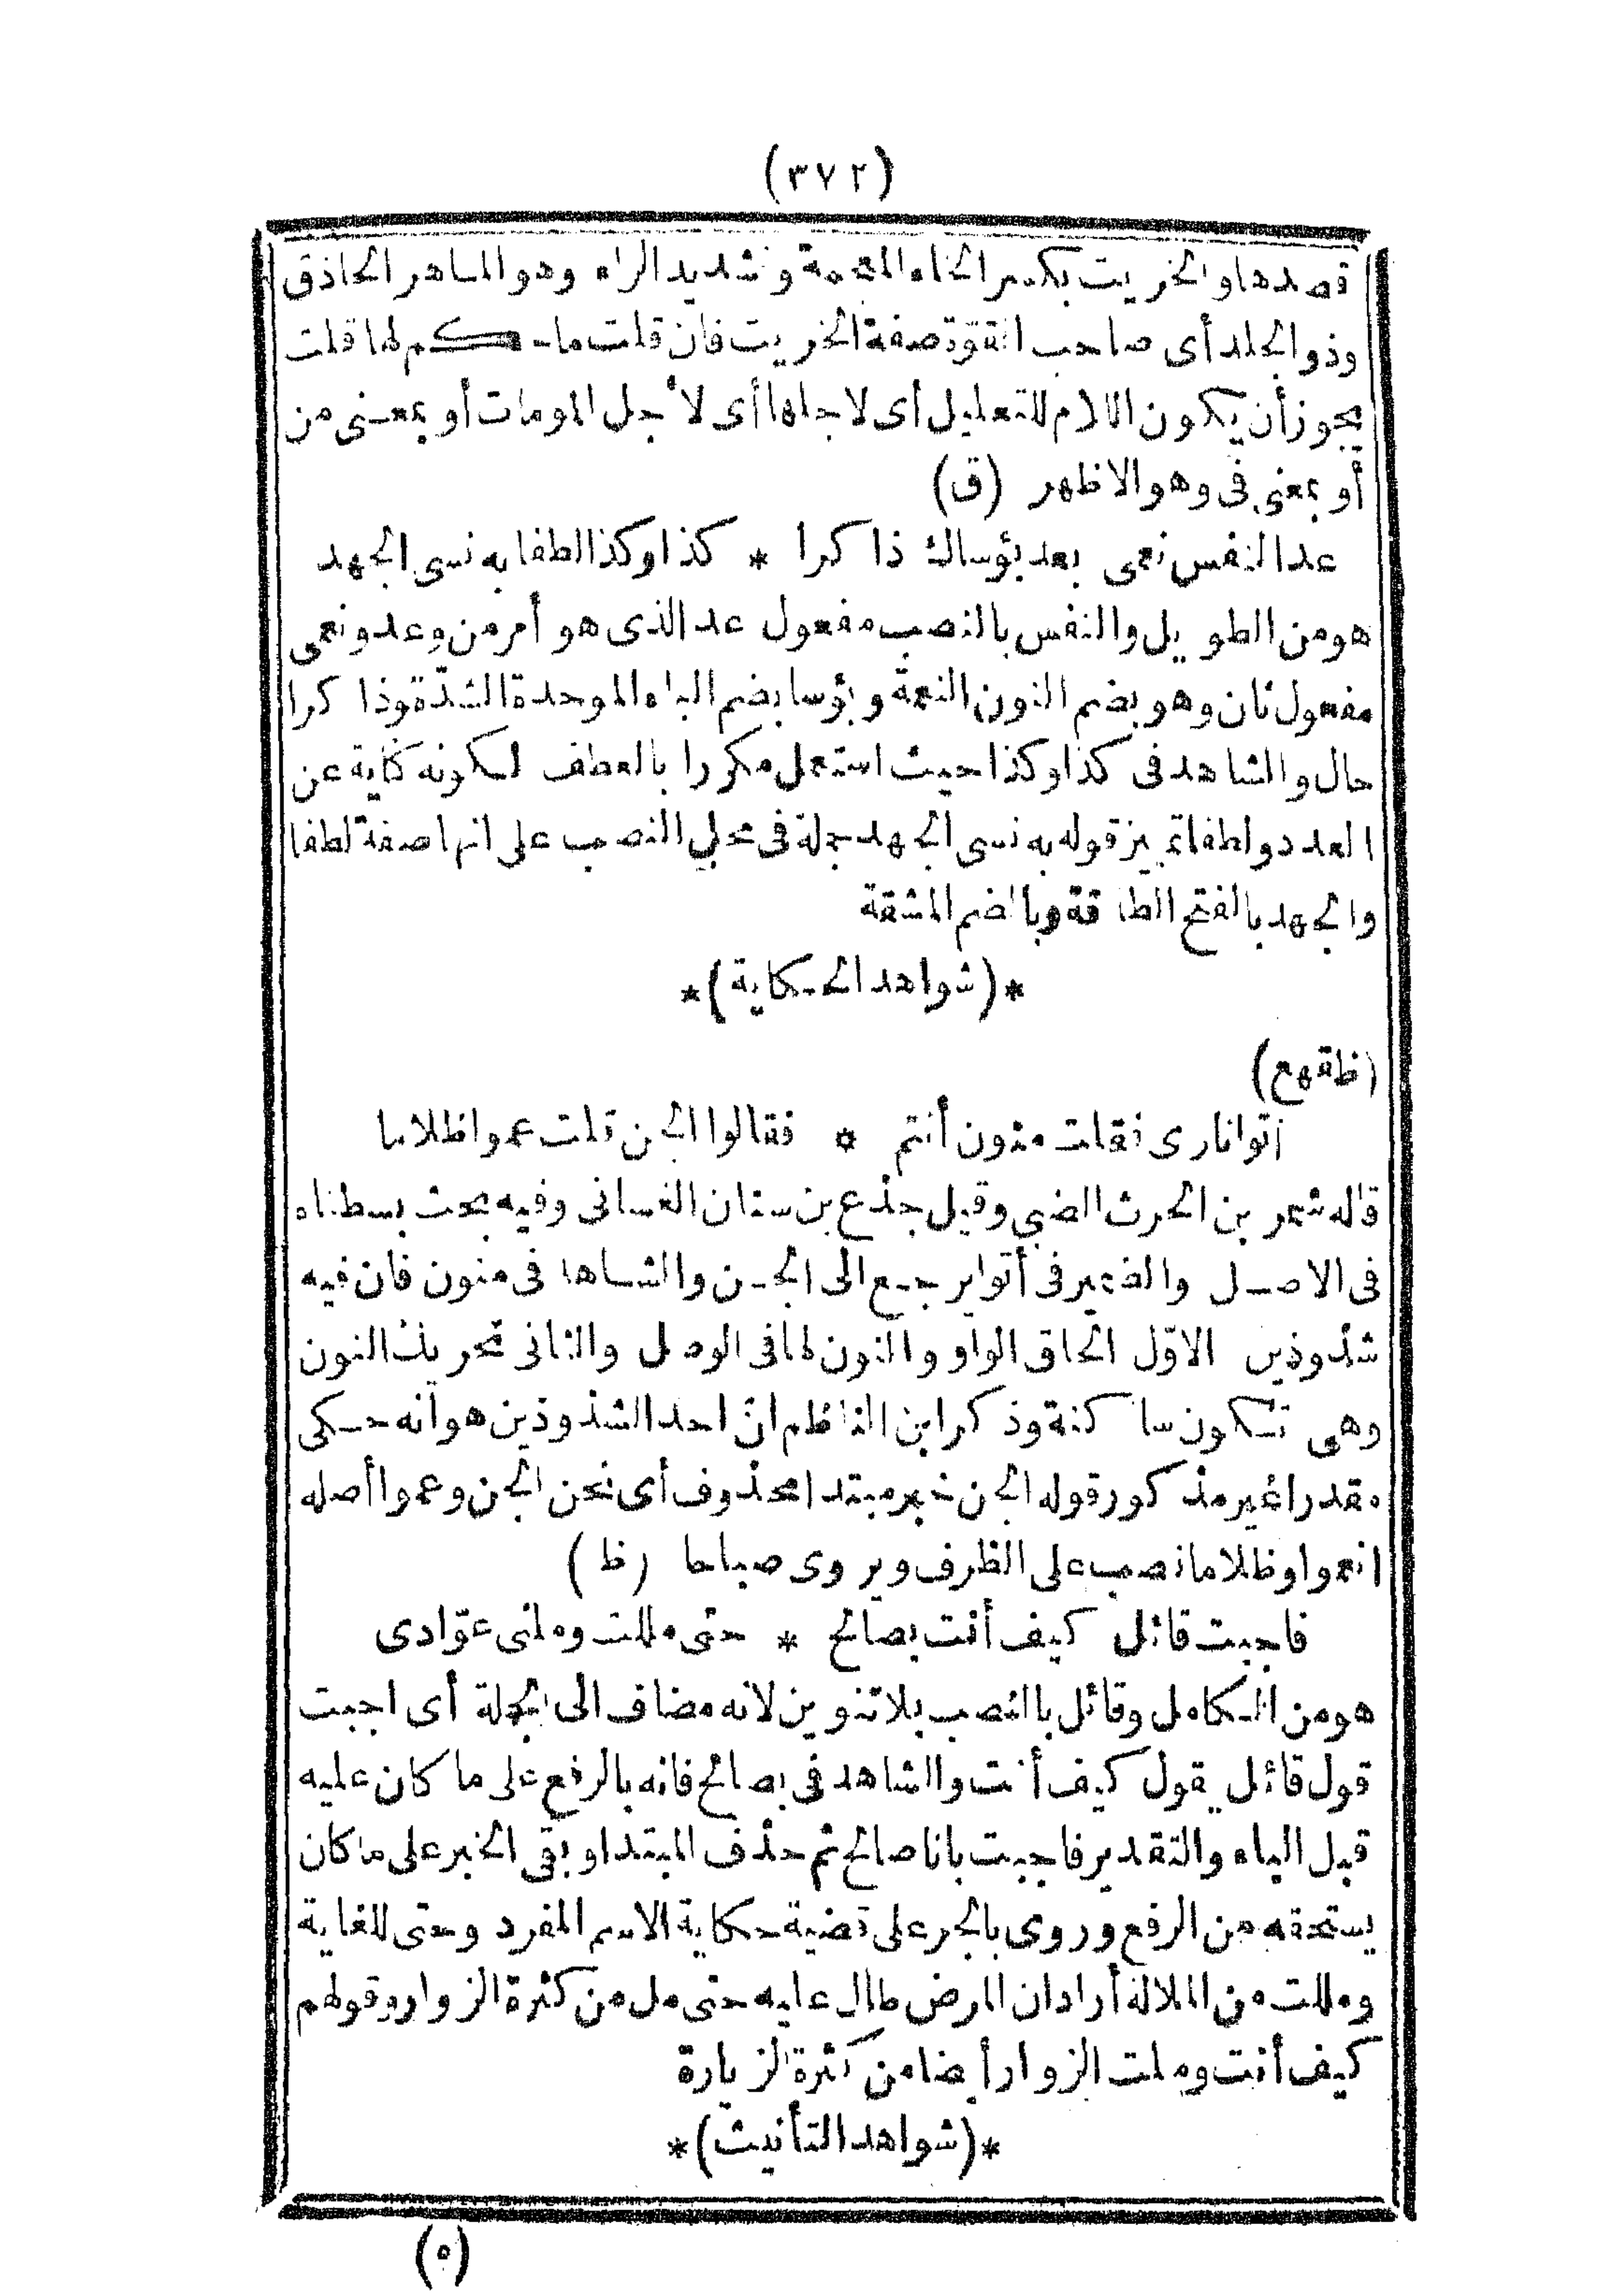 (٣٧٢)
قصدها والخريت بكسر الخاء المعجمة وتشديد الراء وهو الماهر الحاذق
وذو الجلد أى صاحب القوّة صفة الخريت فان قلت ما حكم لها قلت
يجوز أن يكون اللام للتعليل أى لاجلها أى لأجل المومات أو بمعنى من
أو بمعنى فى وهو الاظهر (ق)
عد النفس نعمى بعد بؤساك ذا كرا * كذا وكذا لطفا به نسى الجهد
هو من الطويل والنفس بالنصب مفعول عد الذى هو أمر من وعد ونعمى
مفعول ثان وهو بضم النون النعمة وبؤسا بضم الباء الموحدة الشدّة وذا كرا
حال والشاهد فى كذا وكذا حيث استعمل مكررا بالعطف لكونه كناية عن
العدد ولطفا تمييز قوله به نسى الجهد جملة فى محل النصب على انها صفة لطفا
والجهد بالفتح الطاقة وبالضم المشقة
*(شواهد الحكاية)*
(ظقهع)
أتوا نارى فقلت منون أنتم * فقالوا الجن قلت عموا ظلاما
قاله شمر بن الحرث الضبى وقيل جذع بن سنان الغسانى وفيه بحث بسطناه
فى الاصل والضمير فى أتوا يرجع الى الجن والشاهد فى منون فان فيه
شذوذين الاوّل الحاق الواو والنون لها فى الوصل والثانى تحريك النون
وهى تكون ساكنة وذكر ابن الناظم انّ احد الشذوذين هو أنه حكى
مقدرا غير مذكور قوله الجن خبر مبتدا محذوف أى نحن الجن وعموا أصله
انعموا وظلاما نصب على الظرف ويروى صباحا (ظ)
فاجبت قائل كيف أنت بصالح * حتى مللت وملنى عوّادى
هو من الكامل وقائل بالنصب بلا تنوين لانه مضاف الى الجملة أى اجبت
قول قائل يقول كيف أنت والشاهد فى بصالح فانه بالرفع على ما كان عليه
قبل الباء والتقدير فاجبت بانا صالح ثم حذف المبتدا وبقى الخبر على ما كان
يستحقه من الرفع وروى بالجر على قضية حكاية الاسم المفرد وحتى للغاية
ومللت من الملالة أراد ان المرض طال عليه حتى مل من كثرة الزوار وقولهم
كيف أنت وملت الزوار أيضا من كثرة الزيارة
*(شواهد التأنيث)*
(٥)